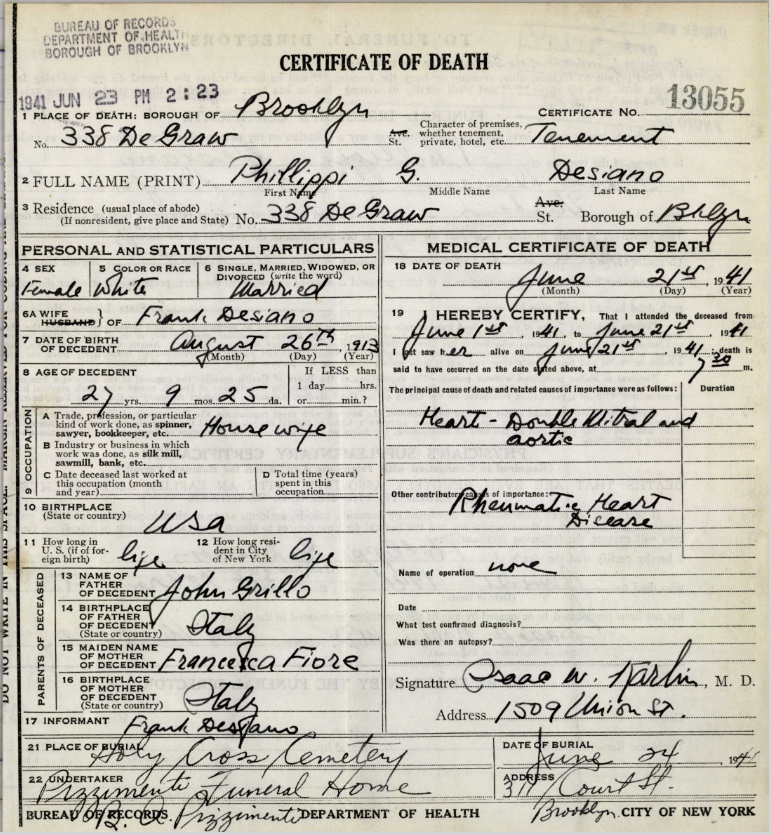 BUREAU OF RECORDS
DEPARTMENT OF HEALTH
BOROUGH OF BROOKLYN
CERTIFICATE OF DEATH
1941 JUN 23 PM 2:23
13055
1 PLACE OF DEATH: BOROUGH OF Brooklyn CERTIFICATE NO.
No. 338 DeGraw Ave. St. Character of premises, whether tenement, private, hotel, etc. Tenement
2 FULL NAME (PRINT) Phillippi G. Desiano
First Name Middle Name Last Name
3 Residence (usual place of abode) (If nonresident, give place and State) No. 338 DeGraw Ave. St. Borough of Bklyn
PERSONAL AND STATISTICAL PARTICULARS
4 SEX Female
5 COLOR OR RACE White
6 SINGLE, MARRIED, WIDOWED, OR DIVORCED (write the word) Married
6A WIFE HUSBAND } OF Frank Desiano
7 DATE OF BIRTH OF DECEDENT August 26th, 1913
(Month) (Day) (Year)
8 AGE OF DECEDENT 27 yrs. 9 mos. 25 da.
If LESS than 1 day____hrs. or____min.?
9 OCCUPATION
A Trade, profession, or particular kind of work done, as spinner, sawyer, bookkeeper, etc. House wife
B Industry or business in which work was done, as silk mill, sawmill, bank, etc.
C Date deceased last worked at this occupation (month and year)
D Total time (years) spent in this occupation
10 BIRTHPLACE (State or country) USA
11 How long in U. S. (if of foreign birth) life
12 How long resident in City of New York life
PARENTS OF DECEASED
13 NAME OF FATHER OF DECEDENT John Grillo
14 BIRTHPLACE OF FATHER OF DECEDENT (State or country) Italy
15 MAIDEN NAME OF MOTHER OF DECEDENT Francesca Fiore
16 BIRTHPLACE OF MOTHER OF DECEDENT (State or country) Italy
17 INFORMANT Frank Desiano
MEDICAL CERTIFICATE OF DEATH
18 DATE OF DEATH June 21st, 1941
(Month) (Day) (Year)
19 I HEREBY CERTIFY, That I attended the deceased from
June 1st 1941, to June 21st 1941
I last saw her alive on June 21st, 1941; death is
said to have occurred on the date stated above, at 7 30 m.
The principal cause of death and related causes of importance were as follows: Duration
Heart - Double Mitral and
aortic
Other contributory causes of importance:
Rheumatic Heart
Disease
Name of operation none
Date
What test confirmed diagnosis?
Was there an autopsy?
Signature Isaac W. Karlin, M. D.
Address 1509 Union St.
21 PLACE OF BURIAL Holy Cross Cemetery
DATE OF BURIAL June 24 1941
22 UNDERTAKER Pizzimenti Funeral Home
ADDRESS 317 Court St.
Pizzimenti
Brooklyn
BUREAU OF RECORDS DEPARTMENT OF HEALTH CITY OF NEW YORK